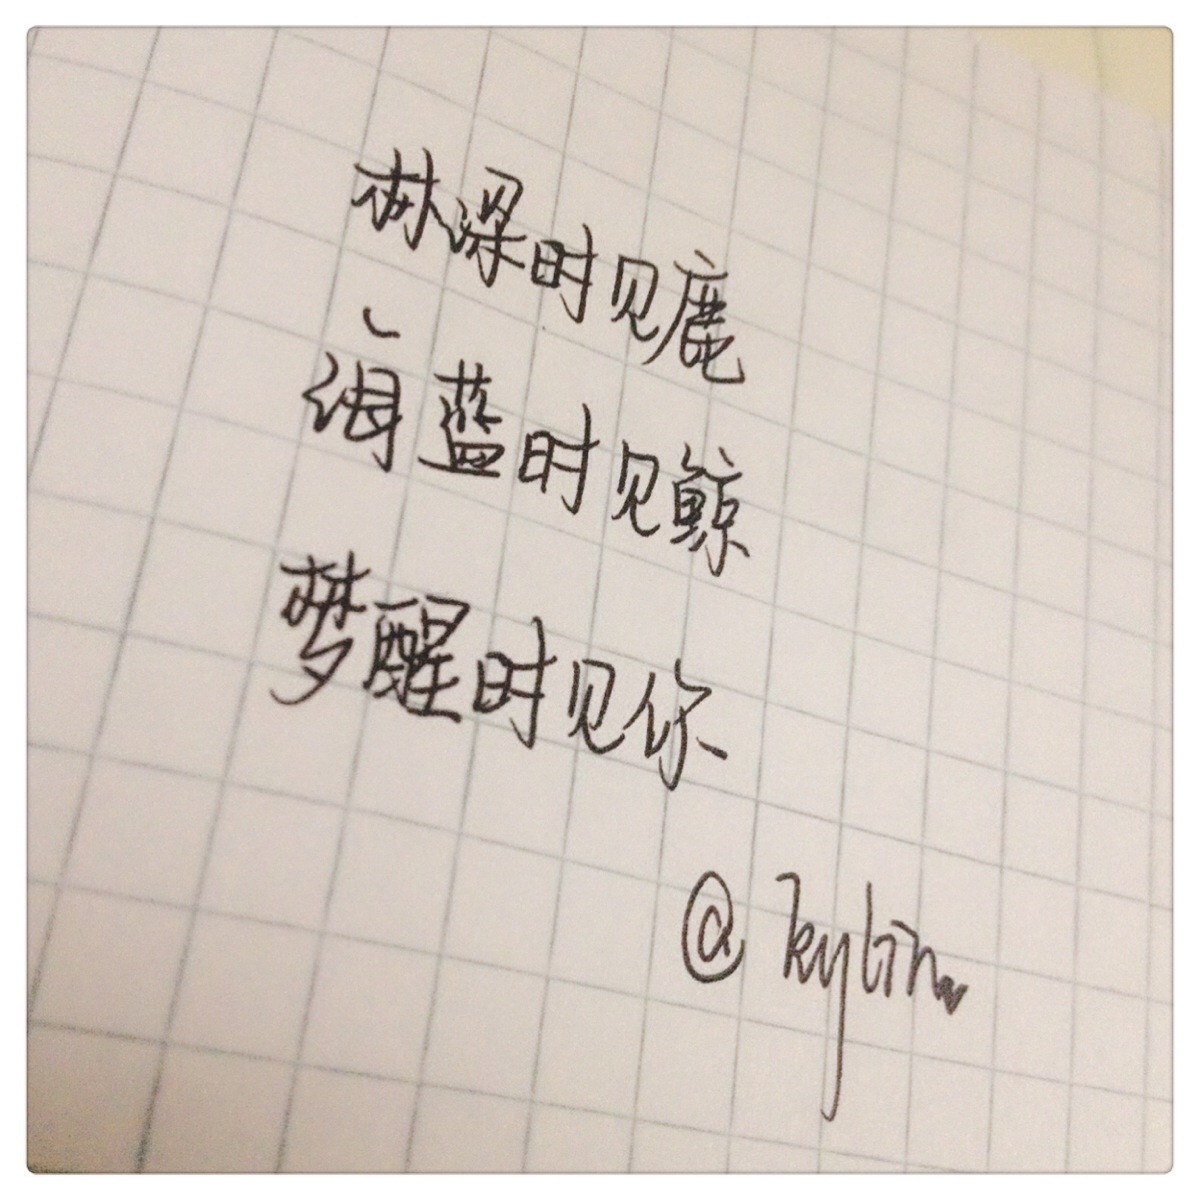 林深时见鹿
海蓝时见鲸
梦醒时见你
@kylin